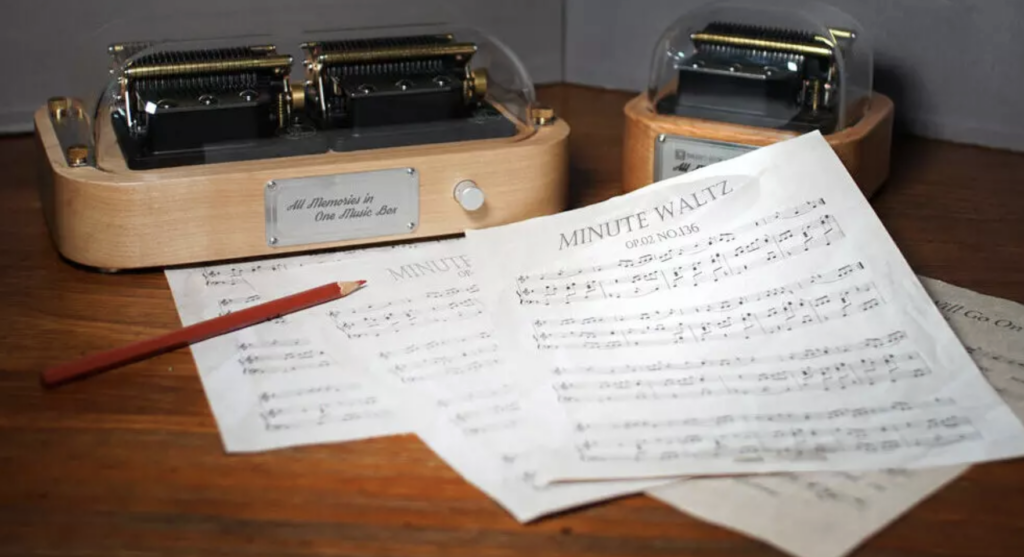 All Memories in
One Music Box
All
MINUTE WALTZ
OP.02 NO.136
MINUTE
OP.
Will Go On